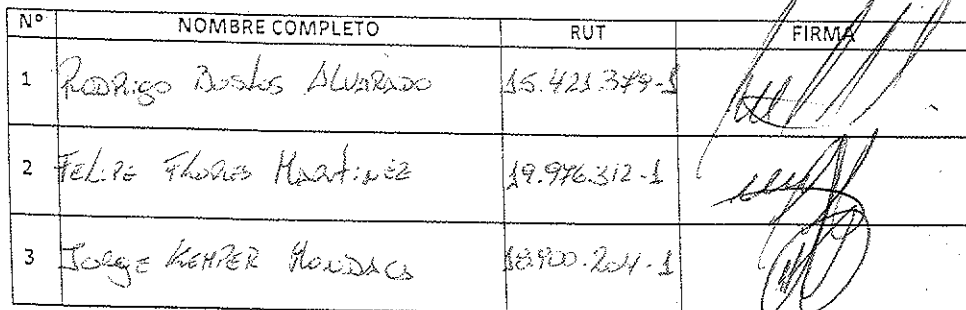 Nº NOMBRE COMPLETO RUT FIRMA
1 Rodrigo Bustos Alvarado 15.421.379-1
2 Felipe Flores Martinez 19.976.312-1
3 Jorge Kemper Mondaca 18.900.204-1